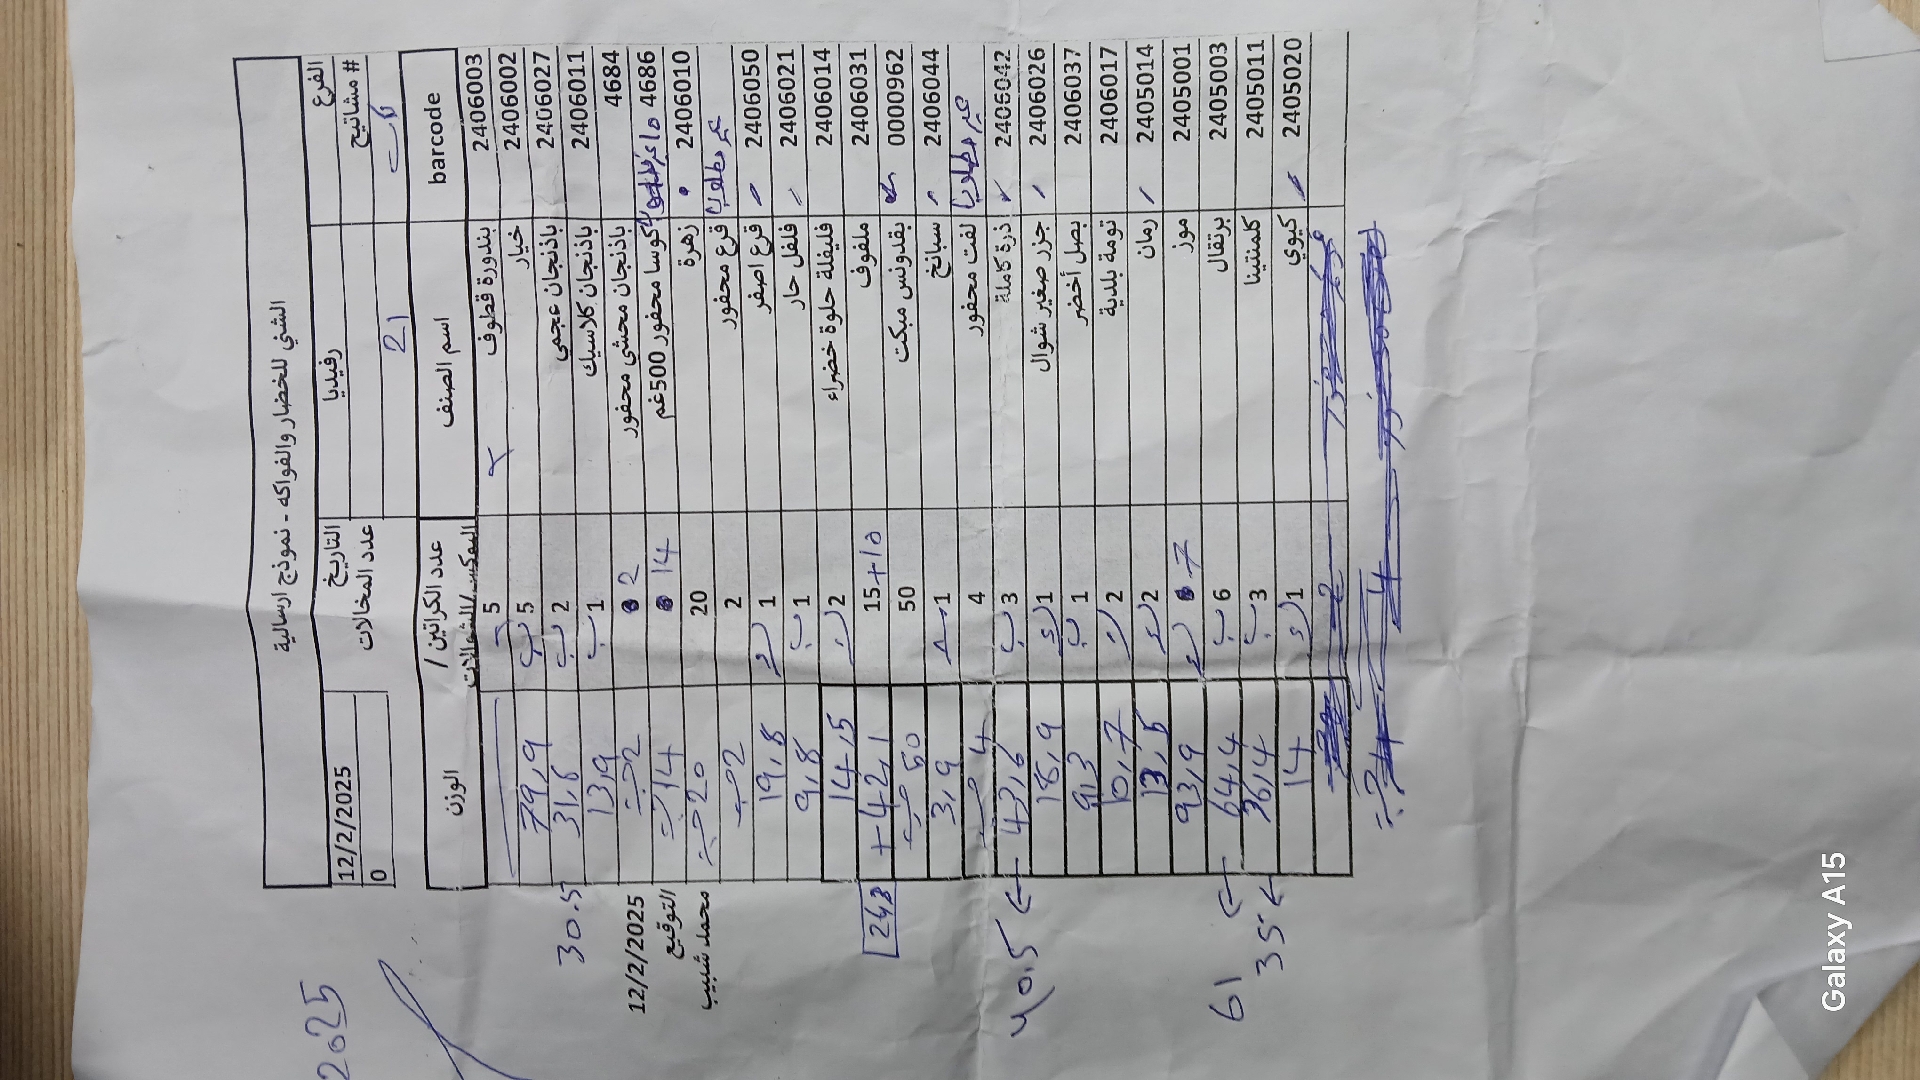 الشني للخضار والفواكه - نموذج ارسالية
الفرع رفيديا التاريخ 12/2/2025
# مشاتيح عدد المخالات 0
21
barcode اسم الصنف عدد الكراتين / البوكس/الشوالات الوزن
2406003 بندورة قطوف 5
2406002 خيار 5 ب 79,9
2406027 باذنجان عجمي 2 ب 31,8 30.5
2406011 باذنجان كلاسيك 1 ب 13,9
4684 باذنجان محشي محفور 2 2 حب 12/2/2025
4686 كوسا محفور 500غم 14 14 حب التوقيع
2406010 زهرة 20 20 حب محمد شبيب
غير مطلوب قرع محفور 2 2 حب
2406050 قرع اصفر 1 19,8
2406021 فلفل حار 1 ب 9,8
2406014 فليفلة حلوة خضراء 2 14,5
2406031 ملفوف 15+10 + 42,1 243
0000962 بقدونس مبكت 50 50 حب
2406044 سبانخ 1 3,9
غير مطلوب لفت محفور 4 4 حب
2406042 ذرة كاملة 3 ب 43,6 ← 40.5
2406026 جزر صغير شوال 1 18,9
2406037 بصل أخضر 1 ب 9,3
2406017 تومة بلدية 2 10,7
2405014 رمان 2 13,5
2405001 موز 7 93,9
2405003 برتقال 6 ب 64,4 ← 61
2405011 كلمنتينا 3 ب 36,4 ← 35
2405020 كيوي 1 14
2025
Galaxy A15